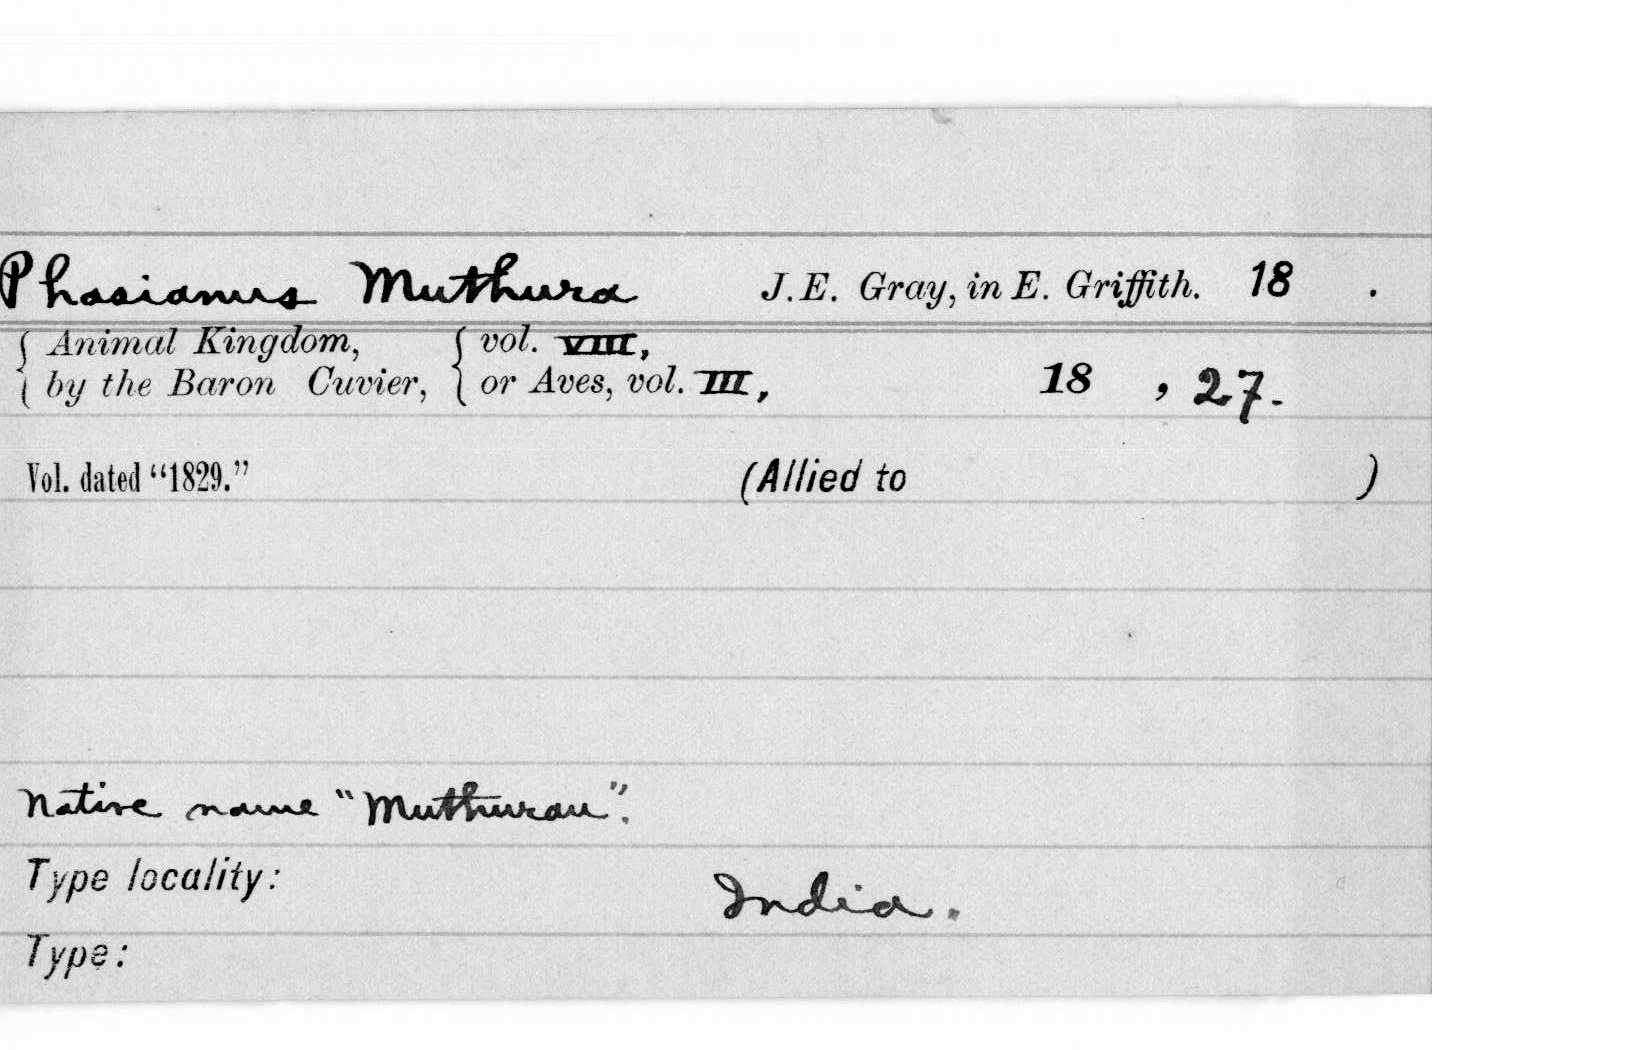 Phasianus Muthura J.E. Gray, in E. Griffith. 18 .
Animal Kingdom, vol. VIII,
by the Baron Cuvier, or Aves, vol. III, 18 , 27.
Vol. dated “1829.” (Allied to )
Native name “Muthurau”.
Type locality: India.
Type: